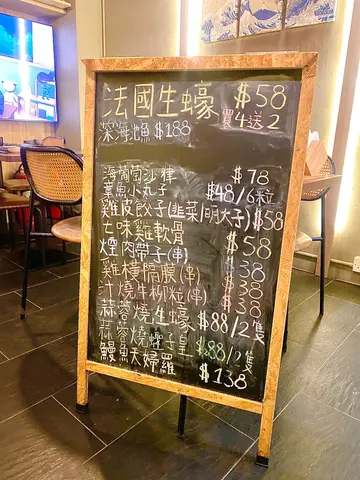 法國生蠔 $58
買4送2
深海池魚 $188
海葡萄沙律 $78
章魚小丸子 $48/6粒
雞皮餃子(韮菜/明太子) $58
七味雞軟骨 $58
煙肉帶子(串) $38
雞橫隔膜(串) $38
汁燒牛柳粒(串) $38
蒜蓉燒生蠔 $88/2隻
蒜蓉燒蟶子皇 $88/2隻
鰻魚天婦羅 $138